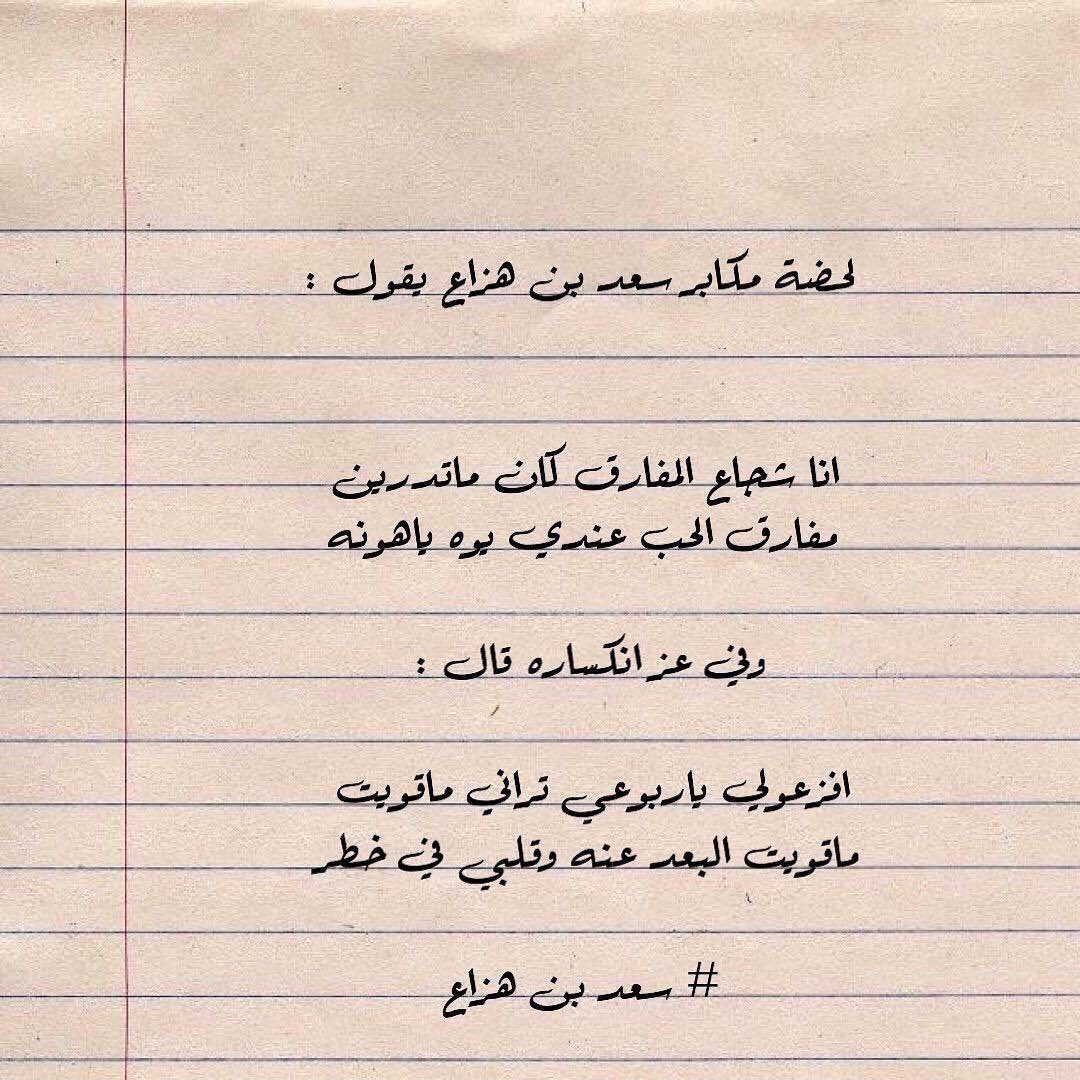 لحضة مكابر سعد بن هزاع يقول :
انا شجاع المفارق كان ماتدرين
مفارق الحب عندي يوه ياهونه
وفي عز انكساره قال :
افزعولي ياربوعي تراني ماقويت
ماقويت البعد عنه وقلبي في خطر
# سعد بن هزاع